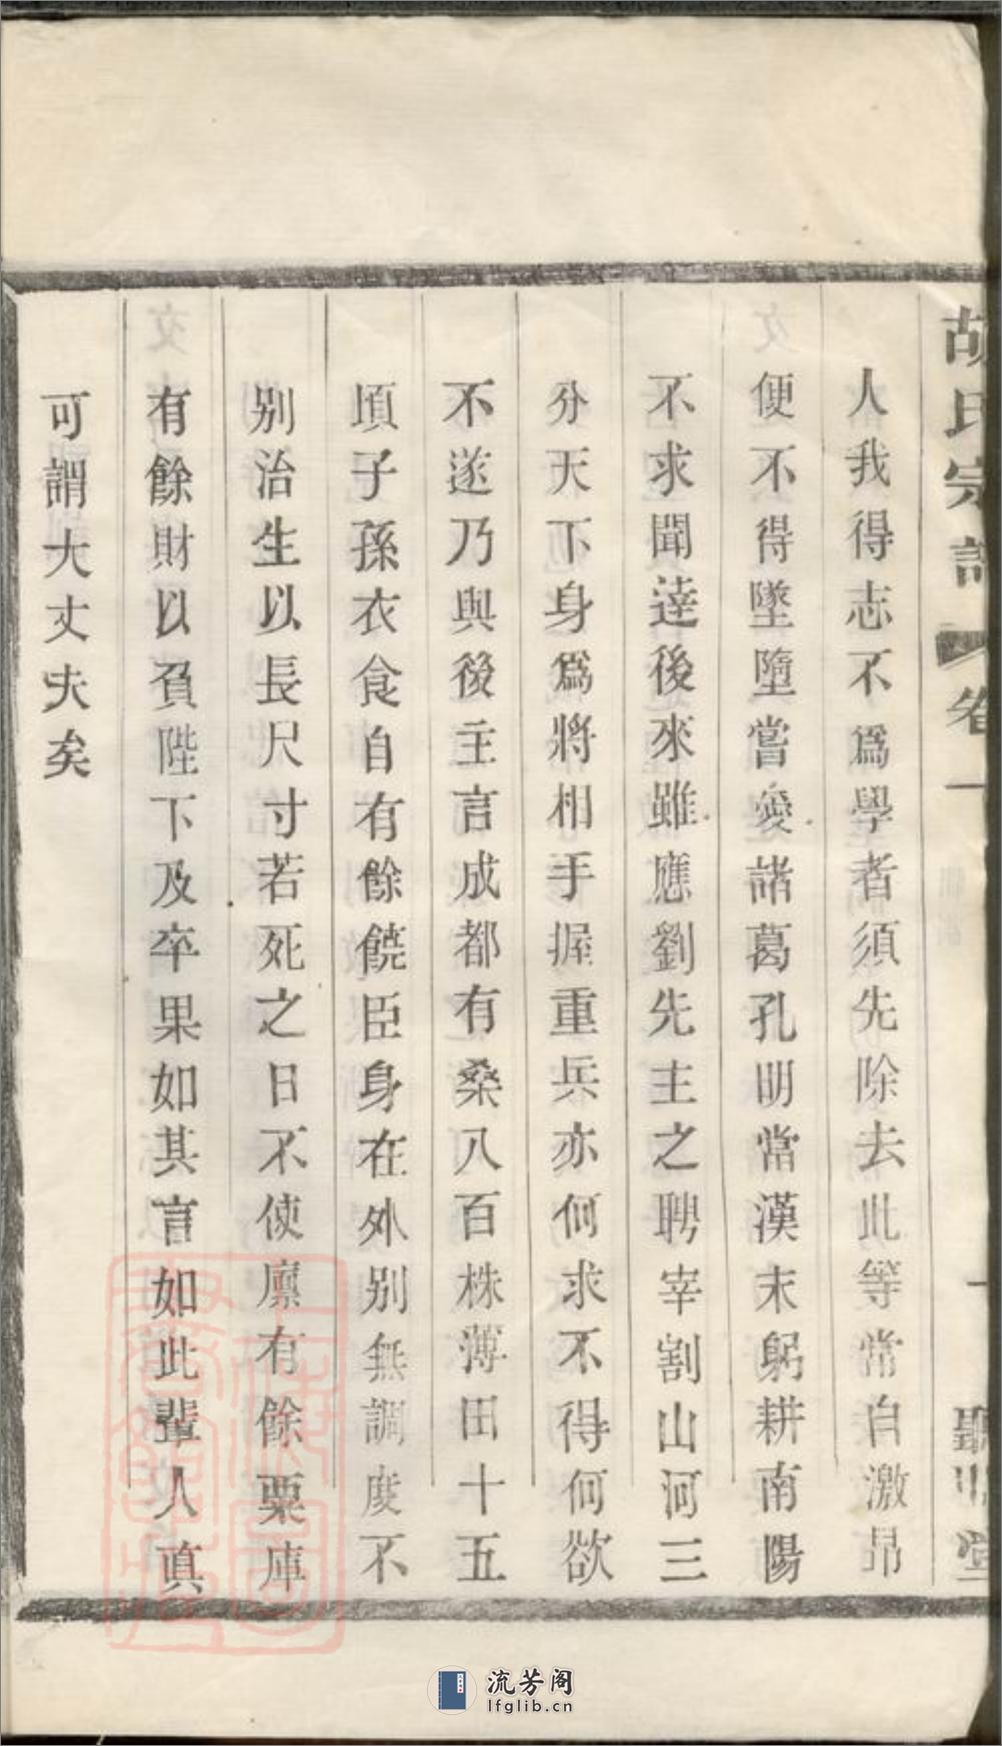 胡氏宗譜 卷一
人我得志不爲學者須先除去此等常自激昂
便不得墜墮嘗愛諸葛孔明當漢末躬耕南陽
不求聞達後來雖應劉先主之聘宰割山河三
分天下身爲將相手握重兵亦何求不得何欲
不遂乃與後主言成都有桑八百株薄田十五
頃子孫衣食自有餘饒臣身在外别無調度不
别治生以長尺寸若死之日不使廪有餘粟庫
有餘財以負陛下及卒果如其言如此輩人真
可謂大丈夫矣
流芳阁
lfglib.cn